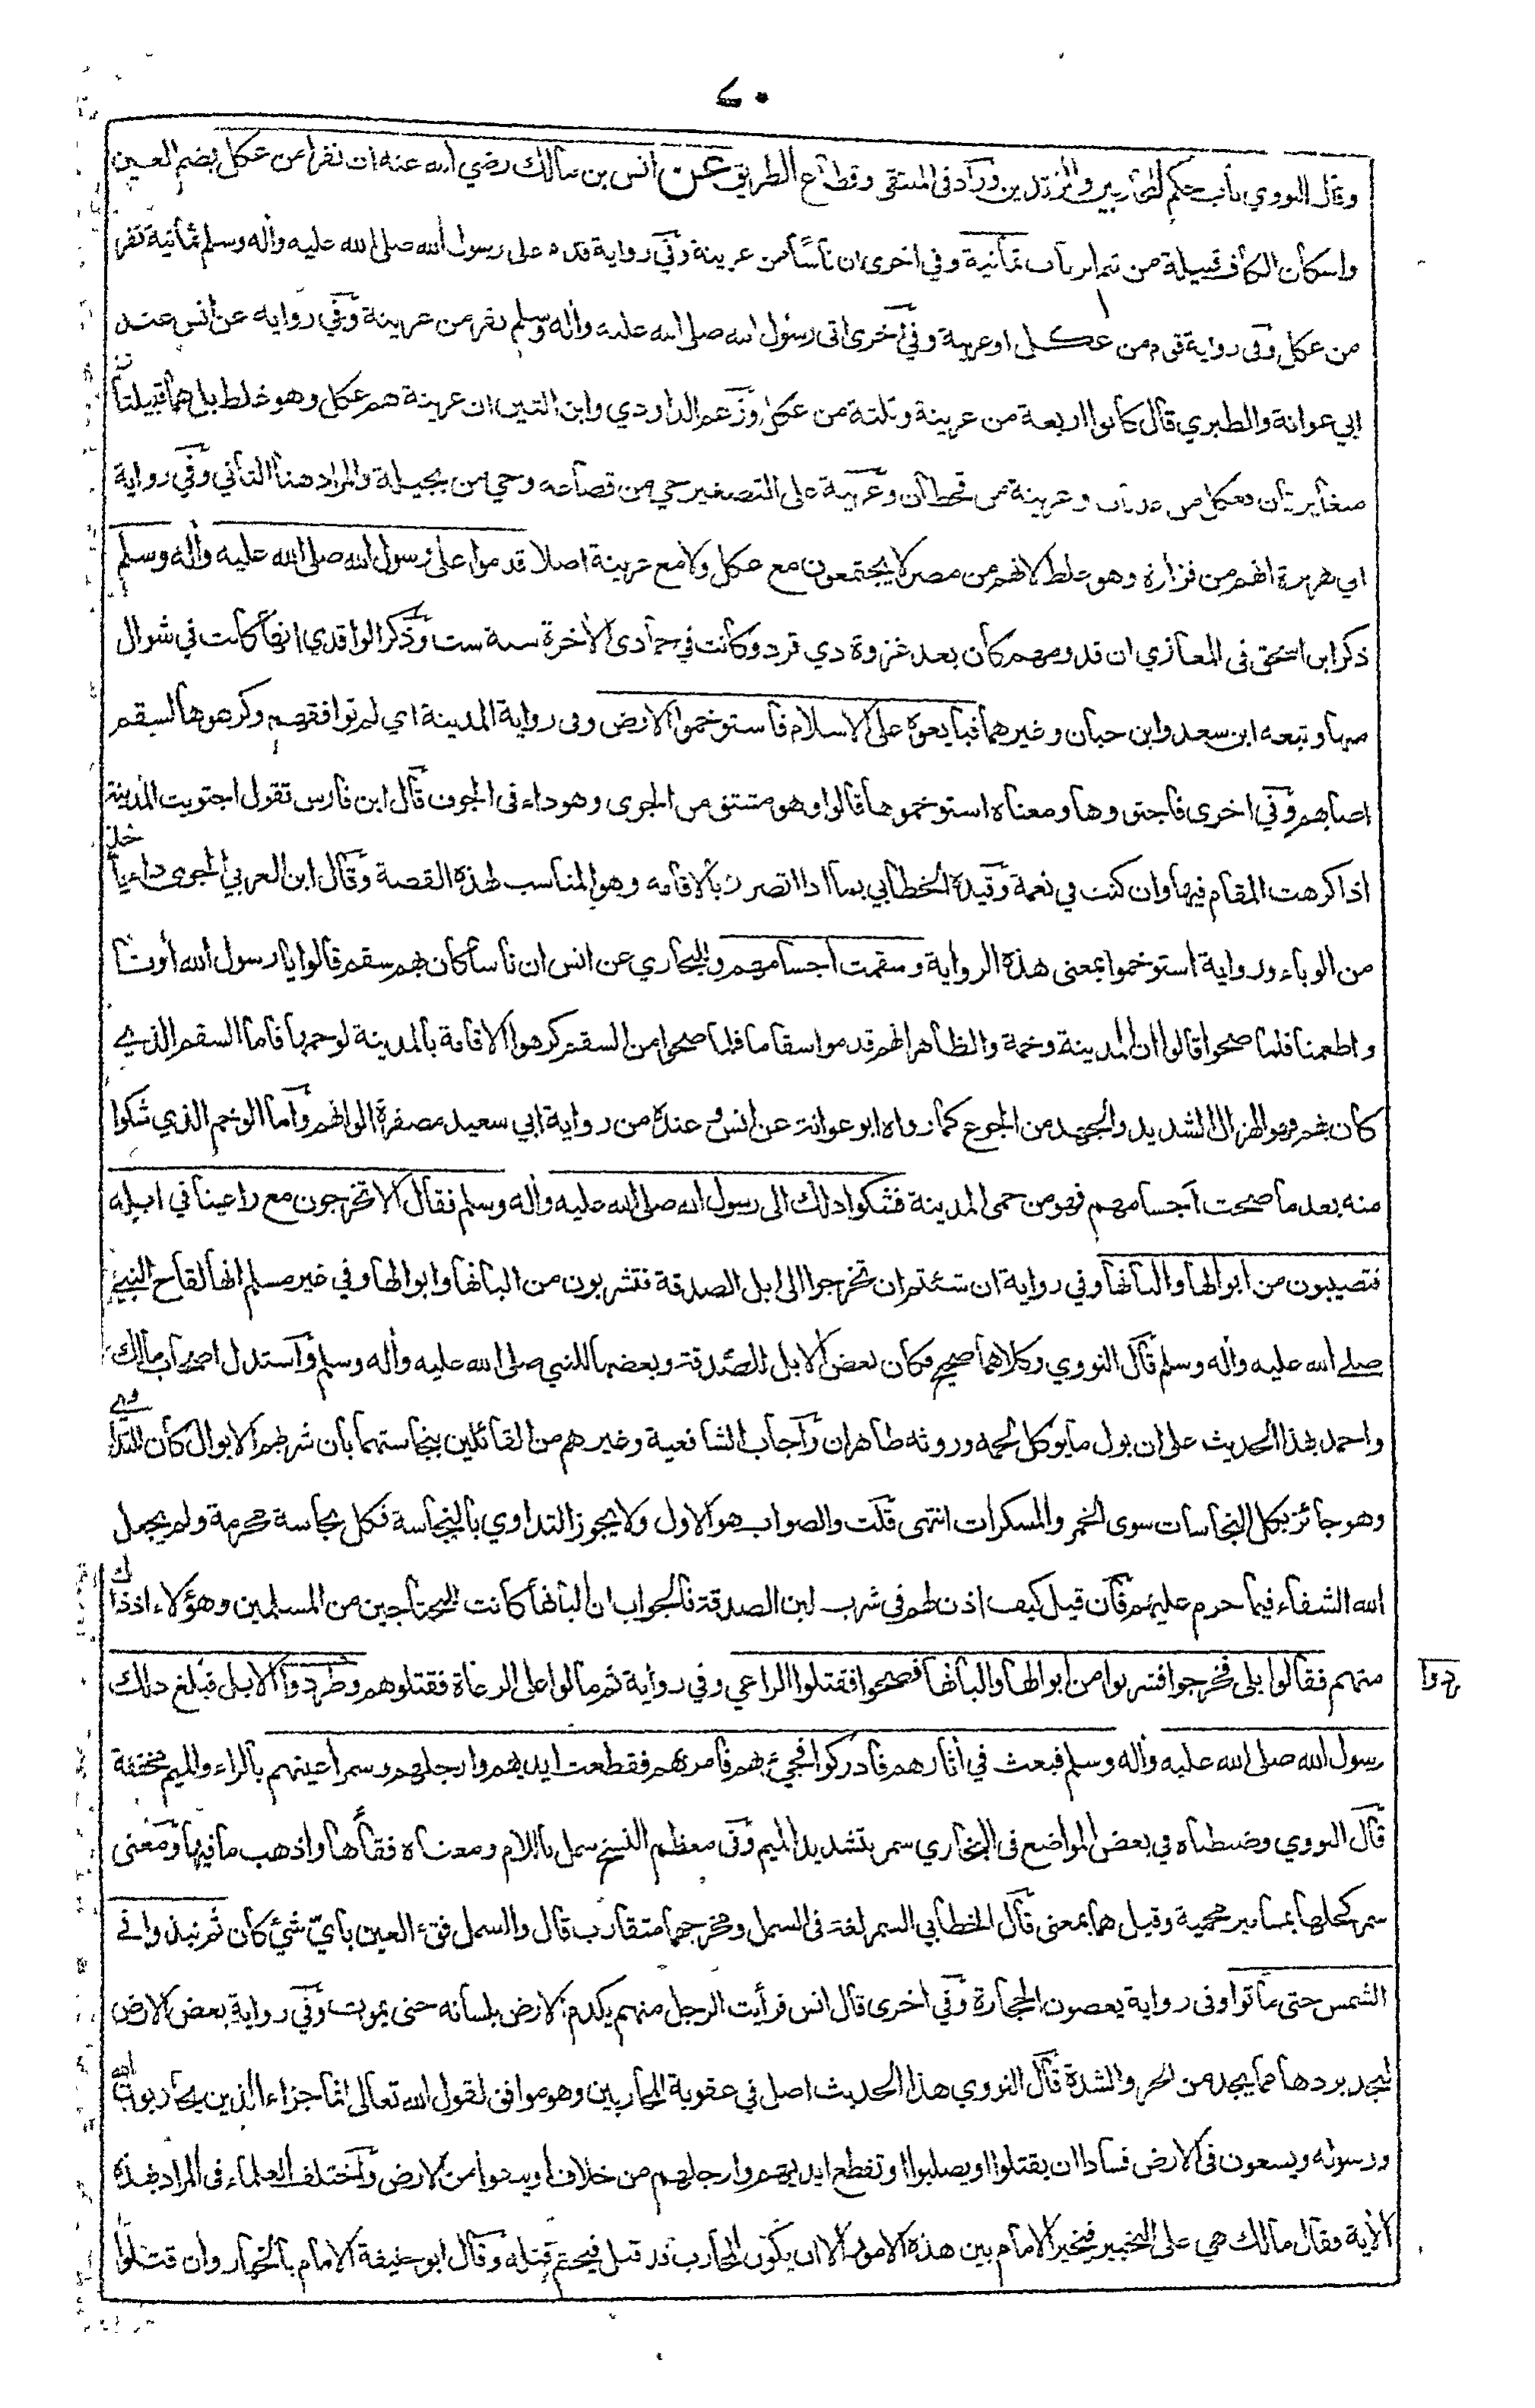 وقال النووي باب حكم المحاربين والمرتدين وزاد في المنتقى وقطاع الطريق عن انس بن مالك رضي الله عنه ان نفرا من عكل بضم العين
واسكان الكاف قبيلة من تيم الرباب ثمانية وفي اخرى ان ناسًا من عرينة وفي رواية قدم على رسول الله صلى الله عليه واله وسلم ثمانية نفر
من عكل وفي رواية قوم من عكل او عرينة وفي اخرى اتى رسول الله صلى الله عليه واله وسلم نفر من عرينة وفي رواية عن انس عند
ابي عوانة والطبري قال كانوا اربعة من عرينة وثلثة من عكل وزعم الداودي وابن التين ان عرينة هم عكل وهو غلط بل هما قبيلتان
متغايرتان فعكل من عدنان وعرينة من قحطان وعرينة على التصغير حي من قضاعة وحي من بجيلة والمراد هنا الثاني وفي رواية
ابي هريرة انهم من فزارة وهو غلط لانهم من مضر لا يجتمعون مع عكل ولا مع عرينة اصلا قدموا على رسول الله صلى الله عليه واله وسلم
ذكر ابن اسحق في المغازي ان قدومهم كان بعد غزوة ذي قرد وكانت في جمادى الاخرة سنة ست وذكر الواقدي انها كانت في شوال
منها وتبعه ابن سعد وابن حبان وغيرهما فبايعوه على الاسلام فاستوخموا الارض وفي رواية المدينة اي لم توافقهم وكرهوها لسقم
اصابهم وفي اخرى فاجتووها ومعناه استوخموها قالوا وهو مشتق من الجوى وهو داء في الجوف قال ابن فارس تقول اجتويت المدينة
اذا كرهت المقام فيها وان كنت في نعمة وقيده الخطابي بما اذا تضرر بالاقامة وهو المناسب لهذه القصة وقال ابن العربي الجوى داء ياخذ
من الوباء ورواية استوخموا بمعنى هذه الرواية وسقمت اجسامهم وللبخاري عن انس ان ناسا كان بهم سقم قالوا يا رسول الله أونا
واطعمنا فلما صحوا قالوا ان المدينة وخمة والظاهر انهم قدموا سقاما فلما صحوا من السقم كرهوا الاقامة بالمدينة لوخمها فاما السقم الذي
كان بهم فهو الهزال الشديد والجهد من الجوع كما رواه ابو عوانة عن انس وعنده من رواية ابي سعيد مصفرة الوانهم وأما الوخم الذي شكوا
منه بعد ما صحت اجسامهم فهو من حمى المدينة فشكوا ذلك الى رسول الله صلى الله عليه واله وسلم فقال الا تخرجون مع راعينا في ابله
فتصيبون من ابوالها والبانها وفي رواية ان شئتم ان تخرجوا الى ابل الصدقة فتشربون من البانها وابوالها وفي غير مسلم انها لقاح النبي
صلى الله عليه واله وسلم قال النووي وكلاهما صحيح فكان بعض الابل للصدقة وبعضها للنبي صلى الله عليه واله وسلم واستدل اصحاب مالك
واحمد بهذا الحديث على ان بول ما يوكل لحمه وروثه طاهران واجاب الشافعية وغيرهم من القائلين بنجاستهما بان شربهم الابوال كان للتداوي
وهو جائز بكل النجاسات سوى الخمر والمسكرات انتهى قلت والصواب هو الاول ولا يجوز التداوي بالنجاسة فكل نجاسة محرمة ولم يجعل
الله الشفاء فيما حرم عليهم فان قيل كيف اذن لهم في شرب لبن الصدقة فالجواب ان البانها كانت للمحتاجين من المسلمين وهؤلاء اذذاك
منهم فقالوا بلى فخرجوا فشربوا من ابوالها والبانها فصحوا فقتلوا الراعي وفي رواية ثم مالوا على الرعاة فقتلوهم وطردوا الابل فبلغ ذلك
ردوا
رسول الله صلى الله عليه واله وسلم فبعث في اثارهم فادركوا فجيء بهم فامر بهم فقطعت ايديهم وارجلهم وسمر اعينهم بالراء والميم مخففة
قال النووي وضبطناه في بعض المواضع في البخاري سمر بتشديد الميم وفي معظم النسخ سمل باللام ومعناه فقأها واذهب ما فيها ومعنى
سمر كحلها بمسامير محمية وقيل هما بمعنى قال الخطابي السمر لغة في السمل ومخرجهما متقارب قال والسمل فقء العين بايّ شيء كان ثم نبذوا في
الشمس حتى ماتوا وفي رواية يعضون الحجارة وفي اخرى قال انس فرأيت الرجل منهم يكدم الارض بلسانه حتى يموت وفي رواية يعض الارض
ليجد بردها مما يجد من الحر والشدة قال النووي هذا الحديث اصل في عقوبة المحاربين وهو موافق لقول الله تعالى انما جزاء الذين يحاربون الله
ورسوله ويسعون في الارض فسادا ان يقتلوا او يصلبوا او تقطع ايديهم وارجلهم من خلاف او ينفوا من الارض واختلف العلماء في المراد بهذه
الأية وقال مالك هي على التخيير فيخير الامام بين هذه الامور الا ان يكون المحارب قد قتل فيحتم قتله وقال ابو حنيفة الامام بالخيار وان قتلوا